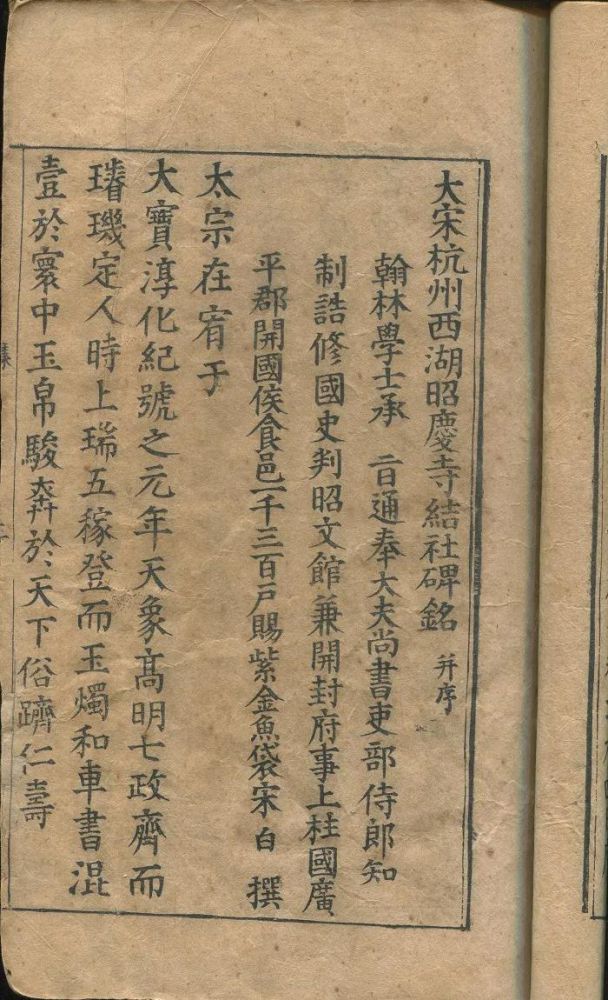 大宋杭州西湖昭慶寺結社碑銘 并序
翰林學士承 㫖通奉大夫尚書吏部侍郎知
制誥修國史判昭文館兼開封府事上柱國廣
平郡開國侯食邑一千三百戸賜紫金魚袋宋白 撰
太宗在宥于
大寶淳化紀號之元年天象髙明七政齊而
璿璣定人時上瑞五稼登而玉燭和車書混
壹於寰中玉帛駿奔於天下俗躋仁壽